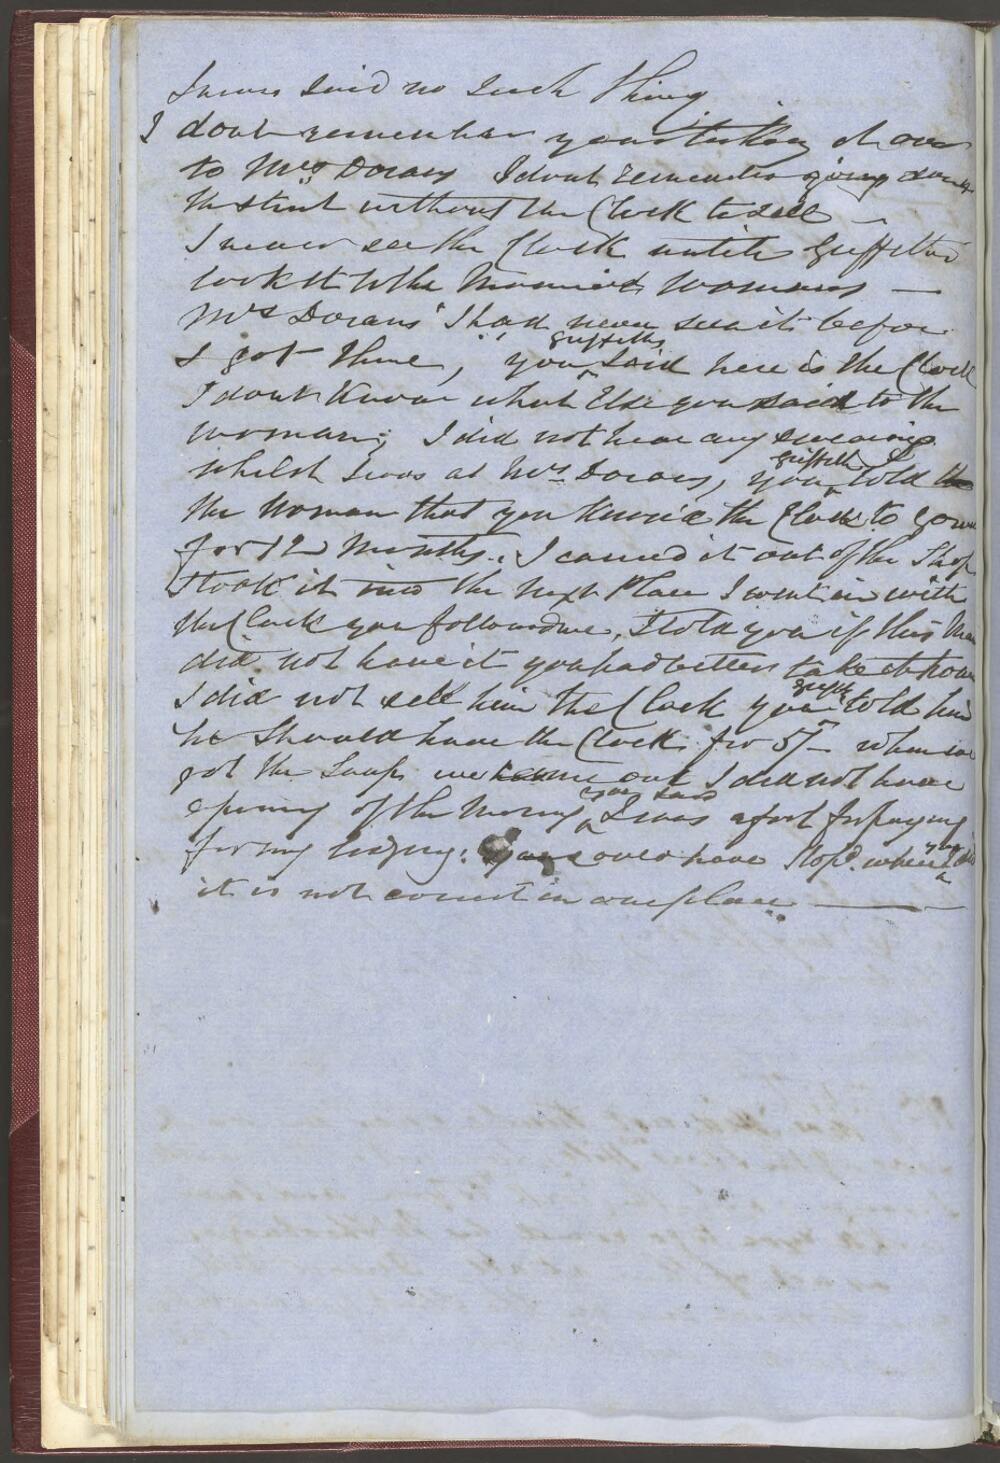 I never said no such thing
I dont remember your taking it over
to Mrs Dorans I dont remember going down
the street without the Clock to sell –
I never see the Clock untill Griffiths
took it to the womans –
Mrs Dorans' I had never seen it before
I got there, you ^Griffiths said here is the Clock
I dont know what Else you said to the
woman; I did not hear any swearing
whilst I was at Mrs Dorans, you ^Griffith told the
the woman that you the Clock to go
for 12 Months. I carried it out of the Shop
I took it into the next Place I went in with
the Clock you followed me, I told you if this Man
did not have it you had better take it home
I did not sell him the Clock you ^Griffith told him
he should have the Clock for 5/- when we
got the we came out I did not have
of the Money ^you said I was a fool for paying
for my you could have Stop'd when ^you
it is not in our place –